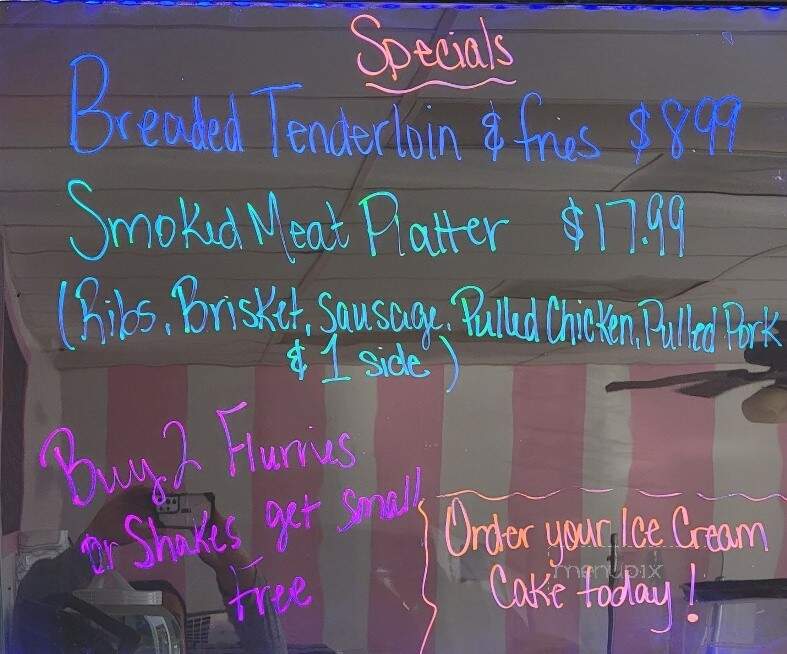 Specials
Breaded Tenderloin & fries $8.99
Smoked Meat Platter $17.99
(Ribs, Brisket, Sausage, Pulled Chicken, Pulled Pork
& 1 side)
Buy 2 Flurries
or Shakes get small
free
Order your Ice Cream
Cake today!
menupix